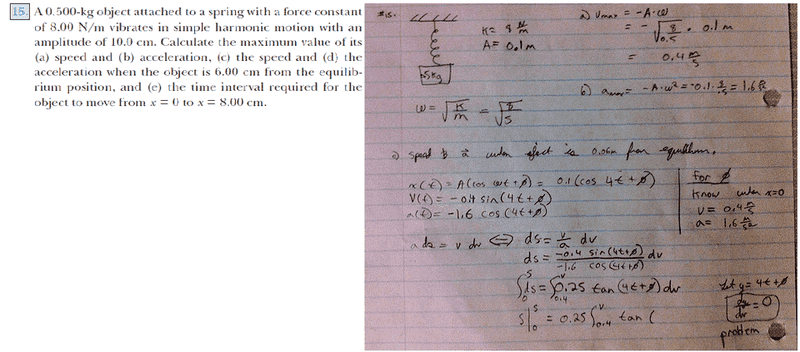 15. A 0.500-kg object attached to a spring with a force constant
of 8.00 N/m vibrates in simple harmonic motion with an
amplitude of 10.0 cm. Calculate the maximum value of its
(a) speed and (b) acceleration, (c) the speed and (d) the
acceleration when the object is 6.00 cm from the equilib-
rium position, and (e) the time interval required for the
object to move from x = 0 to x = 8.00 cm.
#15.
K = 8 N/m
A = 0.1m
.5kg
ω = √K/m = √8/.5
a) Vmax = -A·ω
= -√8/0.5 · 0.1m
= 0.4 m/s
b) amax = -A·ω² = -0.1·8/.5 = 1.6
c) Speed & a⃗ when object is 0.06m from equilibrium.
x(t) = A(cos ωt+ø) = 0.1(cos 4t+ø)
V(t) = -0.4 sin(4t+ø)
a(t) = -1.6 cos(4t+ø)
for ø
Know when x=0
V = 0.4 m/s
a = 1.6 m/s²
a ds = v dv ⟺ ds = v/a dv
ds = -0.4 sin(4t+ø)/-1.6 cos(4t+ø) dv
∫ds = ∫0.25 tan(4t+ø)dv
s|ˢ₀ = 0.25∫ᵛ₀.₄ tan (
Let y = 4t+ø
dy/dv = 0
problem